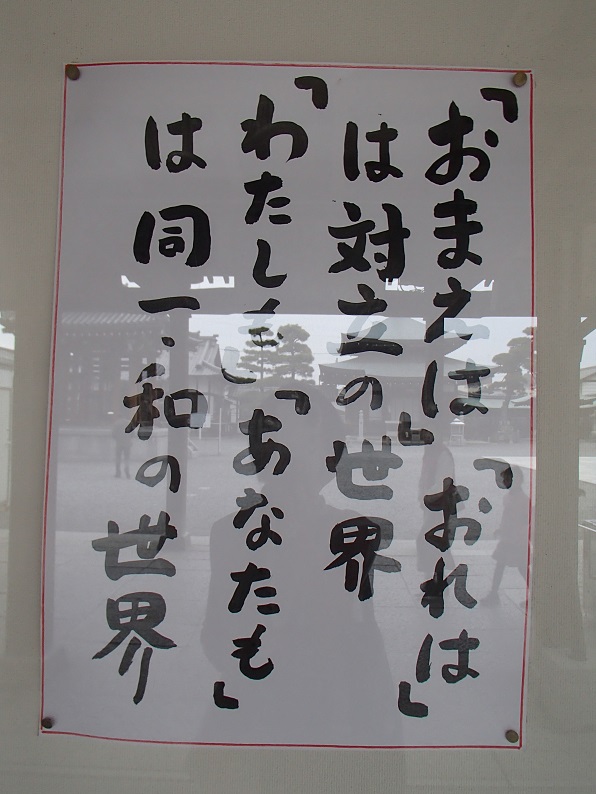 「おまえは」「おれは」
は対立の世界
「わたしも」「あなたも」
は同一・和の世界